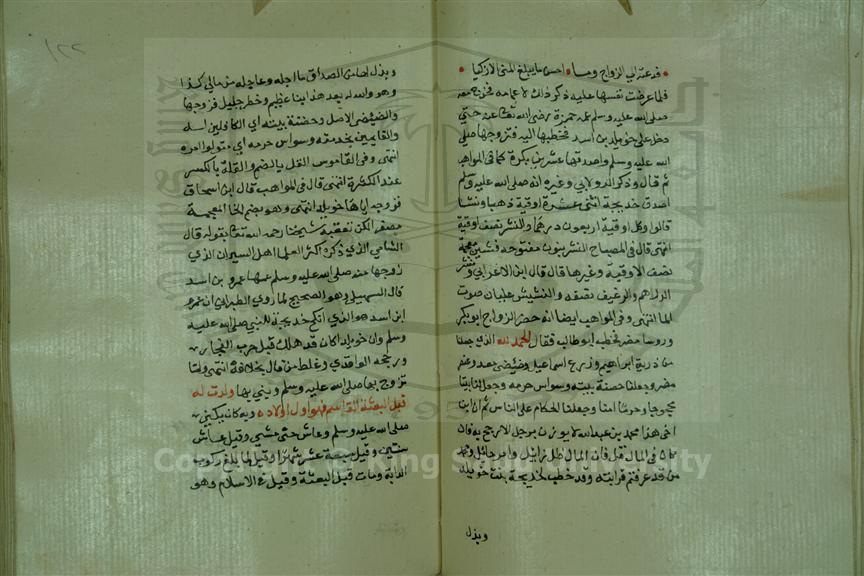 فدعته الي الزواج وما احسن ما يبلغ المني الاذكيا
فلما عرضت نفسها عليه ذكر ذلك لاعمامه فخرج معه
صلي الله عليه وسلم عمه حمزة رضي الله تعالي عنه حتي
دخل علي خويلد بن اسد فخطبها اليه فتزوجها صلي
الله عليه وسلم واصدقها عشرين بكرة كما في المواهب
ثم قال وذكر الدولابي وغيره انه صلي الله عليه وسلم
اصدق خديجة اثنتي عشرة اوقية ذهبا ونشا
قالوا وكل اوقية اربعون درهما والنش نصف اوقية
انتهي قال في المصباح النش بنون مفتوحة فشين معجمة
نصف الاوقية وغيرها قال قال ابن الاعرابي ونش
الدراهم والرغيف نصفه والنشيش غليان صوت
الما انتهي وفي المواهب ايضا انه حضر الزواج ابو بكر
وروسا مضر فخطب ابو طالب فقال الحمد لله الذي جعلنا
من ذرية ابراهيم وزرع اسماعيل وضئضي معد وعنصر
مضر وجعلنا حضنة بيته وسواس حرمه وجعل لنا بيتا
محجوجا وحرما امنا وجعلنا الحكام علي الناس ثم ان ابن
اخي هذا محمد بن عبد الله لا يوزن برجل الا رجح به فان
كان في المال قل فان المال ظل زايل وامر حائل ومحمد
من قد عرفتم قرابته وقد خطب خديجة بنت خويلد
وبذل
٢٢١
وبذل لها من الصداق ما اجله وعاجله من مالي كذا
وهو والله بعد هذا نبا عظيم وخطر جليل فزوجها
والضئضي الاصل وحضنة بيته اي الكافلين له
والقايمين بخدمته وسواس حرمه اي متولوا امره
انتهي وفي القاموس القل بالضم والقلة بالكسر
ضد الكثرة انتهي قال في المواهب قال ابن اسحاق
فزوجه اياها خويلد انتهي وهو بضم الخا المعجمة
مصغر لكن تعقبه شيخنا رحمه الله تعالي بقوله قال
الشامي الذي ذكره اكثر العلما اهل السير ان الذي
زوجها منه صلي الله عليه وسلم عمها عمرو بن اسد
قال السهيلي وهو الصحيح لما روي الطبراني ان عمرو
ابن اسد هو الذي انكح خديجة للنبي صلي الله عليه
وسلم وان خويلدا كان قد هلك قبل حرب الفجار
ورجحه الواقدي وغلط من قال بخلافه انتهي ولما
تزوج بها صلي الله عليه وسلم وبني بها ولدت له
قبل البعثة القاسم فهو اول اولاده وبه كان يكني
صلي الله عليه وسلم وعاش حتي مشي وقيل عاش
سنتين وقيل سبعة عشر شهرا وقيل بلغ ركوب
الدابة ومات قبل البعثة وقيل في الاسلام وهو
Copyright © King Saud University